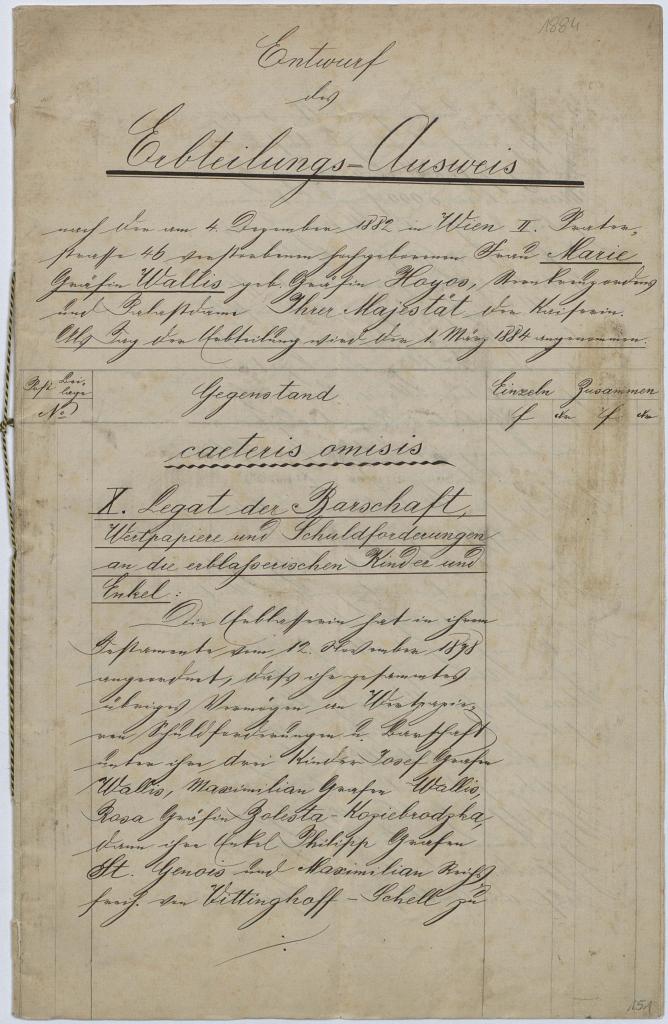 1884
Entwurf
des
Erbteilungs-Ausweis
nach der am 4. Dezember 1882 in Wien II. Prater-
strasse 46 verstorbenen hochgeborenen Frau Marie
Gräfin Wallis geb. Gräfin Hoyos, Sternkreuzordens
und Palastdame Ihrer Majestät der Kaiserin.
Als Tag der Erbteilung wird der 1. März 1884 angenommen.
Post Bei-
lage
No
Gegenstand
Einzeln Zusammen
f kr f kr
caeteris omisis
X. Legat der Barschaft,
Wertpapiere und Schuldforderungen
an die erblasserischen Kinder und
Enkel:
Die Erblasserin hat in ihrem
Testamente vom 12. November
angeordnet, dass ihr gesammtes
übriges Vermögen an Wertpapie-
ren Schuldforderungen u. Barschaft
unter ihre drei Kinder Josef Grafen
Wallis, Maximilian Grafen Wallis,
Rosa Gräfin Bolesta-Koziebrodzka,
dann ihre Enkel Philipp Grafen
St. Genois und Maximilian Reichs-
freih. von Vittinghoff-Schell zu
151